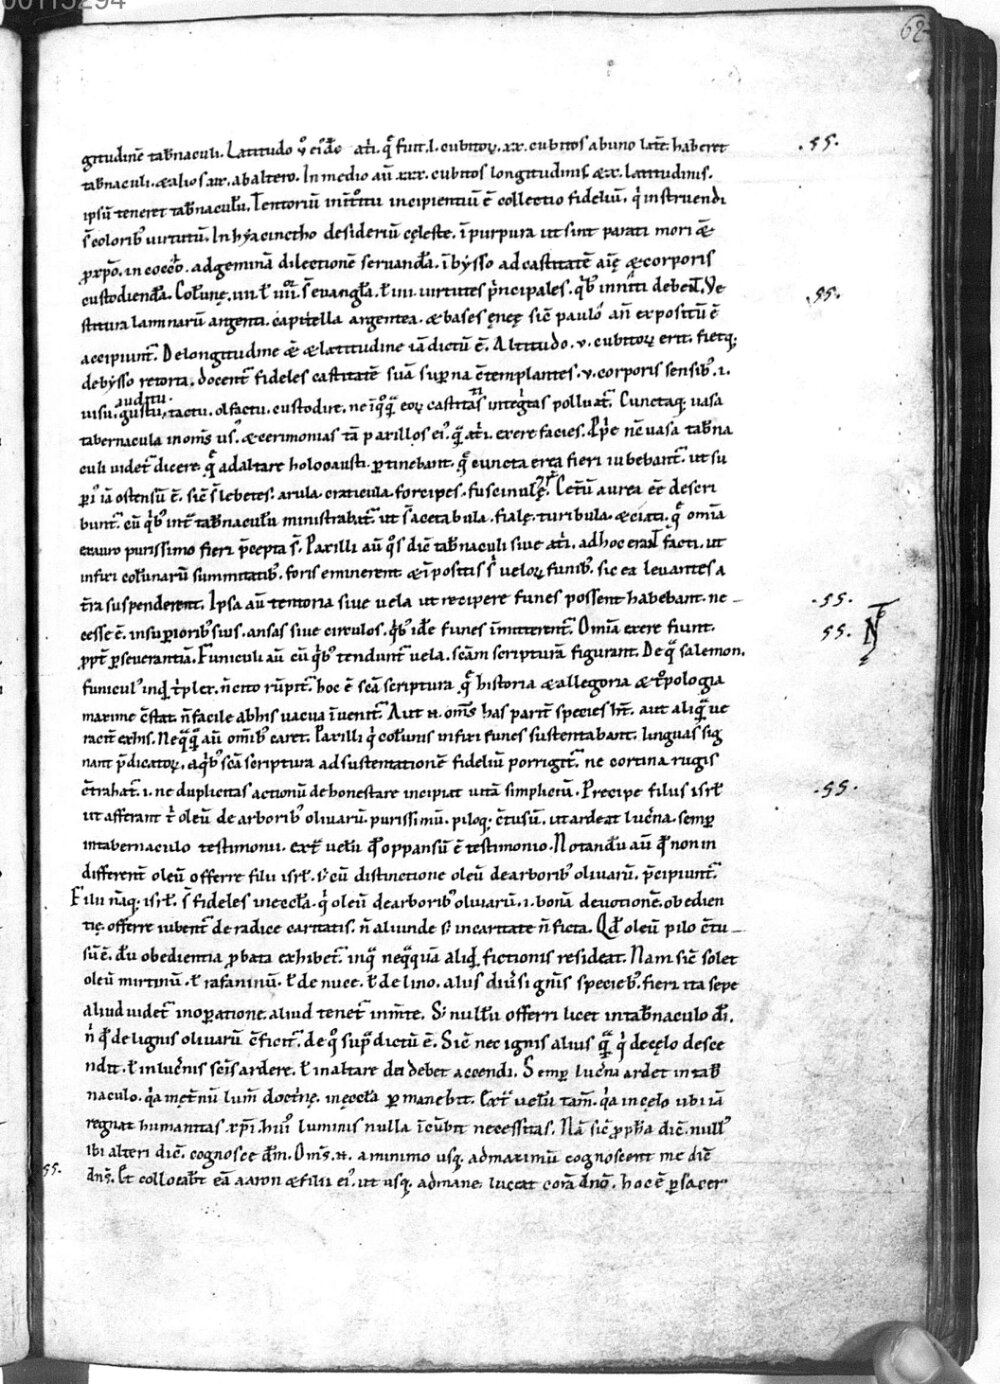 00115294
68
gitudinē tab̄naculi. Latitudo v̊ ei᾽dē atrii. quę̄ fuit .l. cubitoꝝ. xx. cubitos ab uno lat̄e. haberet
tab̄naculi. & alios xx. ab altero. In medio aū xxx. cubitos longitudinis. & x. latitudinis.
ipsū teneret tab̄naculū. Tentoriū introitū incipientiū ē collectio fideliū. qͥ instruendi
s̄ coloribꝰ virtutū. In hyacinctho desideriū cęleste. ī purpura ut sint parati mori &
ꝓ xp̄o. in cocco. ad geminā dilectionē servandā. ī bysso ad castitatē aīę & corporis
custodiendā. Colūnę. iiii. ł iiii᷒. s̄ evanglᷓa. ł iiii. virtutes pͥncipales. qͥbꝰ inniti debent. Ve
stitura laminarū argenti. capitella argentea. & bases ęneę sic̄ paulo añ expositū ē
accipiunt᷑. De longitudine & latitudine iā dictū ē. Altitudo. v. cubitoꝝ erit. fietq;
de bysso retorta. docent᷑ fideles castitatē suā suꝑna ꝯtemplantes. v. corporis sensibꝰ. i.
auditu.
visu. gustu, tactu. olfactu. custodire. ne īqͣqͣ eoꝝ castitatis integͥtas polluat᷑. Cunctaq. vasa
tabernacula in om̄s usꝰ. & cerimonias tā paxillos eiꝰ. qͣ atrii. ex ere facies. Apͥe nc̄ vasa tab̄na
culi videt᷑ dicere. qͣ ad altare holocausti. ꝑtinebant. qͣ cuncta erea fieri iubebant᷑. ut su
ꝑiꝰ iā ostensū ē. sic̄ s̄ lebetes. arula. craticula. forcipes. fuscinulę. Cet̄ū aurea eē descri
bunt᷑. cū qͥbꝰ int̄ tab̄naculū ministrabat᷑. ut s̄ acetabula. fialę. turibula. & ciati. qͣ om̄ia
ex auro purissimo fieri p̄cepta s̄. Paxilli aū qͦs dic̄ tab̄naculi sive atrii. ad hoc erant facti. ut
infixi colūnarū summitatibꝰ. foris eminerent & īpositis s̄ veloꝝ funibꝰ. sic ea levantes a
t̄ra suspenderent. Ipsa aū tentoria sive vela ut recipere funes possent habebant. ne
cesse ē. in suꝑioribꝰ suis. ansas sive circulos. qͥbꝰ idē funes īmitterent᷑. Om̄ia ex ere fiunt.
ꝓpt̄ ꝑseverantiā. Funiculi aū cū qͥbꝰ tendunt᷑ vela. scām scripturā figurant. De qͣ salemon.
funiculꝰ inqͥd tͥplex. n̄ cito rūpit᷑. hoc ē scā scriptura qͣ historia & allegoria & tͦpologia
maxime ꝯstat. n̄ facile ab his vacua īvenit᷑. Aut n̄. om̄s has parit᷑ species ht̄. aut aliqͣ ve
racit̄ ex his. Neqͣqͣ aū om̄ibꝰ caret. Paxilli qͥ colūnis infixi funes sustentabant. linguas sig
nant p̄dicatoꝝ. a qͥbꝰ scā scriptura ad sustentationē fideliū porrigit᷑. ne cortina rugis
ꝯtrahat᷑. i. ne duplicitas actionū dehonestare incipiat vitā simpliciū. Precipe filiis isrł
ut afferant tͥ oleū de arboribꝰ olivarū. purissimū. piloq; ꝯtusū. ut ardeat lucͥna. semꝑ
in tabernaculo testimonii. extͣ velū qͦ oppansū ē testimonio. Notandū aū qͦ non in
different᷑ oleū offerre filii isrł. s; cū distinctione oleū de arboribꝰ olivarū. p̄cipiunt᷑.
Filii nāq. isrł. s̄ fideles in ecclᷓa. qͥ oleū de arboribꝰ olivarū. i. bonā devotionē. obedien
tię. offerre iubent᷑ de radice caritatis. n̄ aliunde s; in caritate n̄ ficta. Qd̄ oleū pilo ꝯtu
sū ē. dū obedientia ꝓbata exhibet᷑. in qͣ neqͣquā aliqͥd fictionis resideat. Nam sic̄ solet
oleū mirtinū. ł rafaninū. ł de nuce. ł de lino. aliis div̄si gn̄is speciebꝰ. fieri ita sepe
aliud videt᷑ in oꝑatione. aliud tenet᷑ in m̄te. S; nullū offerri licet in tab̄naculo dī.
nͥ qͦ de lignis olivarū ꝯficit᷑. de qͦ sup̄ dictū ē. Sic̄ nec ignis alius qͣ qͥ de cęlo desce
ndit. ł in lucͥnis scīs ardere. ł in altare dei debet accendi. Semꝑ lucͥna ardet in tab̄
naculo. qͥa męt̄nū lum̄ doctͥnę. in ęcclᷓa ꝑmanebit. Extͣ velū tam̄. qͥa in cęlo ubi iā
regnat humanitas xp̄i. huiꝰ luminis nulla īcūbit necessitas. Nā sic̄ ꝓpħa dic̄. nullꝰ
ibi alteri dic̄. cognosce dn̄m. Om̄s. n̄. a minimo usq. ad maximū cognoscent me dic̄
dn̄s. Et collocab̄t eā aaron & filii eiꝰ. ut usq. ad mane. luceat corā dn̄o. hoc ē ꝑ sacer
.55.
.55.
.55.
55.
.55.
55.